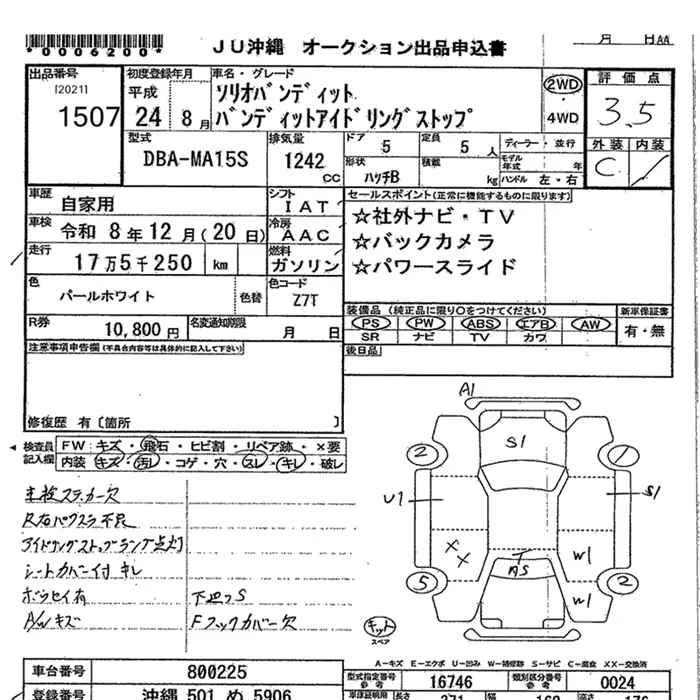 *0006200*
JU沖縄 オークション出品申込書
月 日AA
出品番号
[2021]
1507
初度登録年月
平成
24 8月
車名・グレード
ソリオバンディット
バンディットアイドリングストップ
2WD
4WD
評価点
3.5
外装 内装
C
型式
DBA-MA15S
排気量
1242
cc
ドア
5
定員
5 人
形状
ハッチB
積載
kg
ディーラー・並行
モデル年式 年
ハンドル 左・右
車歴
自家用
シフト
IAT
車検
令和 8年 12月(20日)
冷房
AAC
走行
17万5千250 km
燃料
ガソリン
色
パールホワイト
色替
色コード
Z7T
R券
10,800円
名変通知期限
月 日
セールスポイント(正常に機能するものに限ります)
☆社外ナビ・TV
☆バックカメラ
☆パワースライド
装備品(純正品に限り○をつけてください)
PS PW ABS エアB AW
SR ナビ TV カワ
新車保証書
有・無
後日品
注意事項申告欄(不具合内容等は具体的に記入して下さい)
修復歴 有〔箇所 〕
検査員記入欄
FW:キズ・飛石・ヒビ割・リペア跡・×要
内装:キズ・汚レ・コゲ・穴・スレ・キレ・破レ
車検ステッカー欠
アイドリングストップランプ点灯
シートカバー付 キレ
ボウセイ有
A/Wキズ
下廻りS
Fフックカバー欠
A1
S1
2
1
U1
S1
XX
W1
W1
5
2
キット
スペア
A-キズ E-エクボ U-凹み W-補修跡 S-サビ C-腐食 XX-交換済
車台番号
800225
型式指定番号
16746
類別区分番号
0024
登録番号
沖縄 501 め 5906
車庫証明用
長さ
371
幅
162
高さ
176